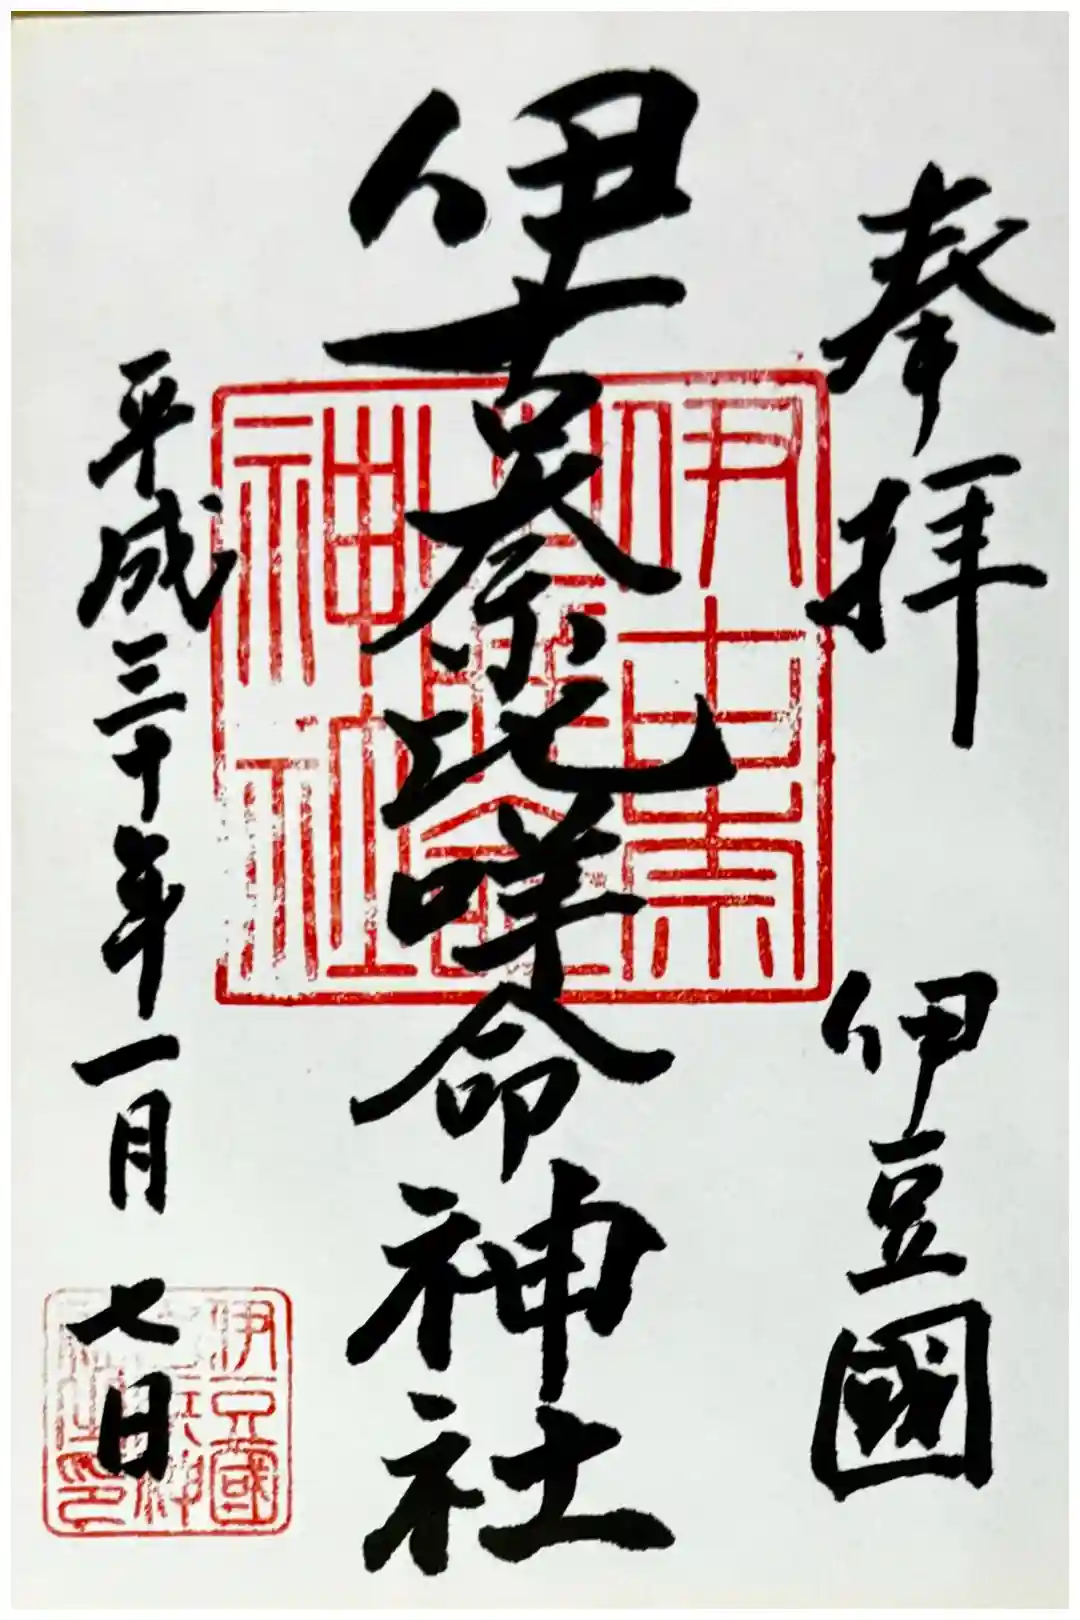 奉拝 伊豆國
伊古奈比咩命神社
平成三十年一月七日
伊古奈
比咩命
神社
伊豆國
白浜神
社之印